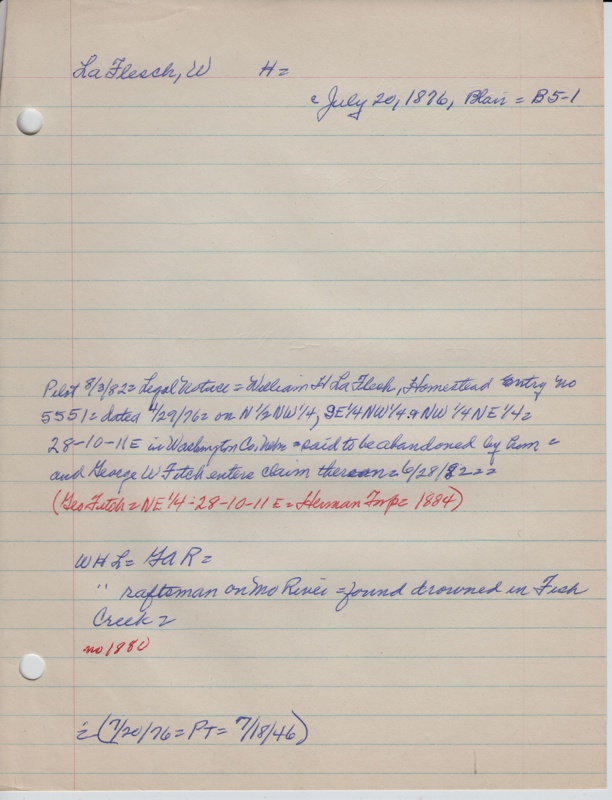 La Flesch, W H =
c July 20, 1876, Blair = B5-1
Pilot 8/3/82 = Legal Notice = William H La Flesh, Homestead Entry No
5551 = dated 4/29/76 = on N 1/2 NW 1/4, SE 1/4 NW 1/4 & NW 1/4 NE 1/4 =
28-10-11 E in Washington Co, = said to be abandoned by him =
and George W Fitch enters claim thereon = 6/28/82 = =
(Geo Fitch = NE 1/4 = 28-10-11 E = Herman Twp = 1884)
W H L = GaR =
" raftsman on Mo River = found drowned in Fish
Creek =
no 1880
i (7/20/76 = PT = 7/18/46)